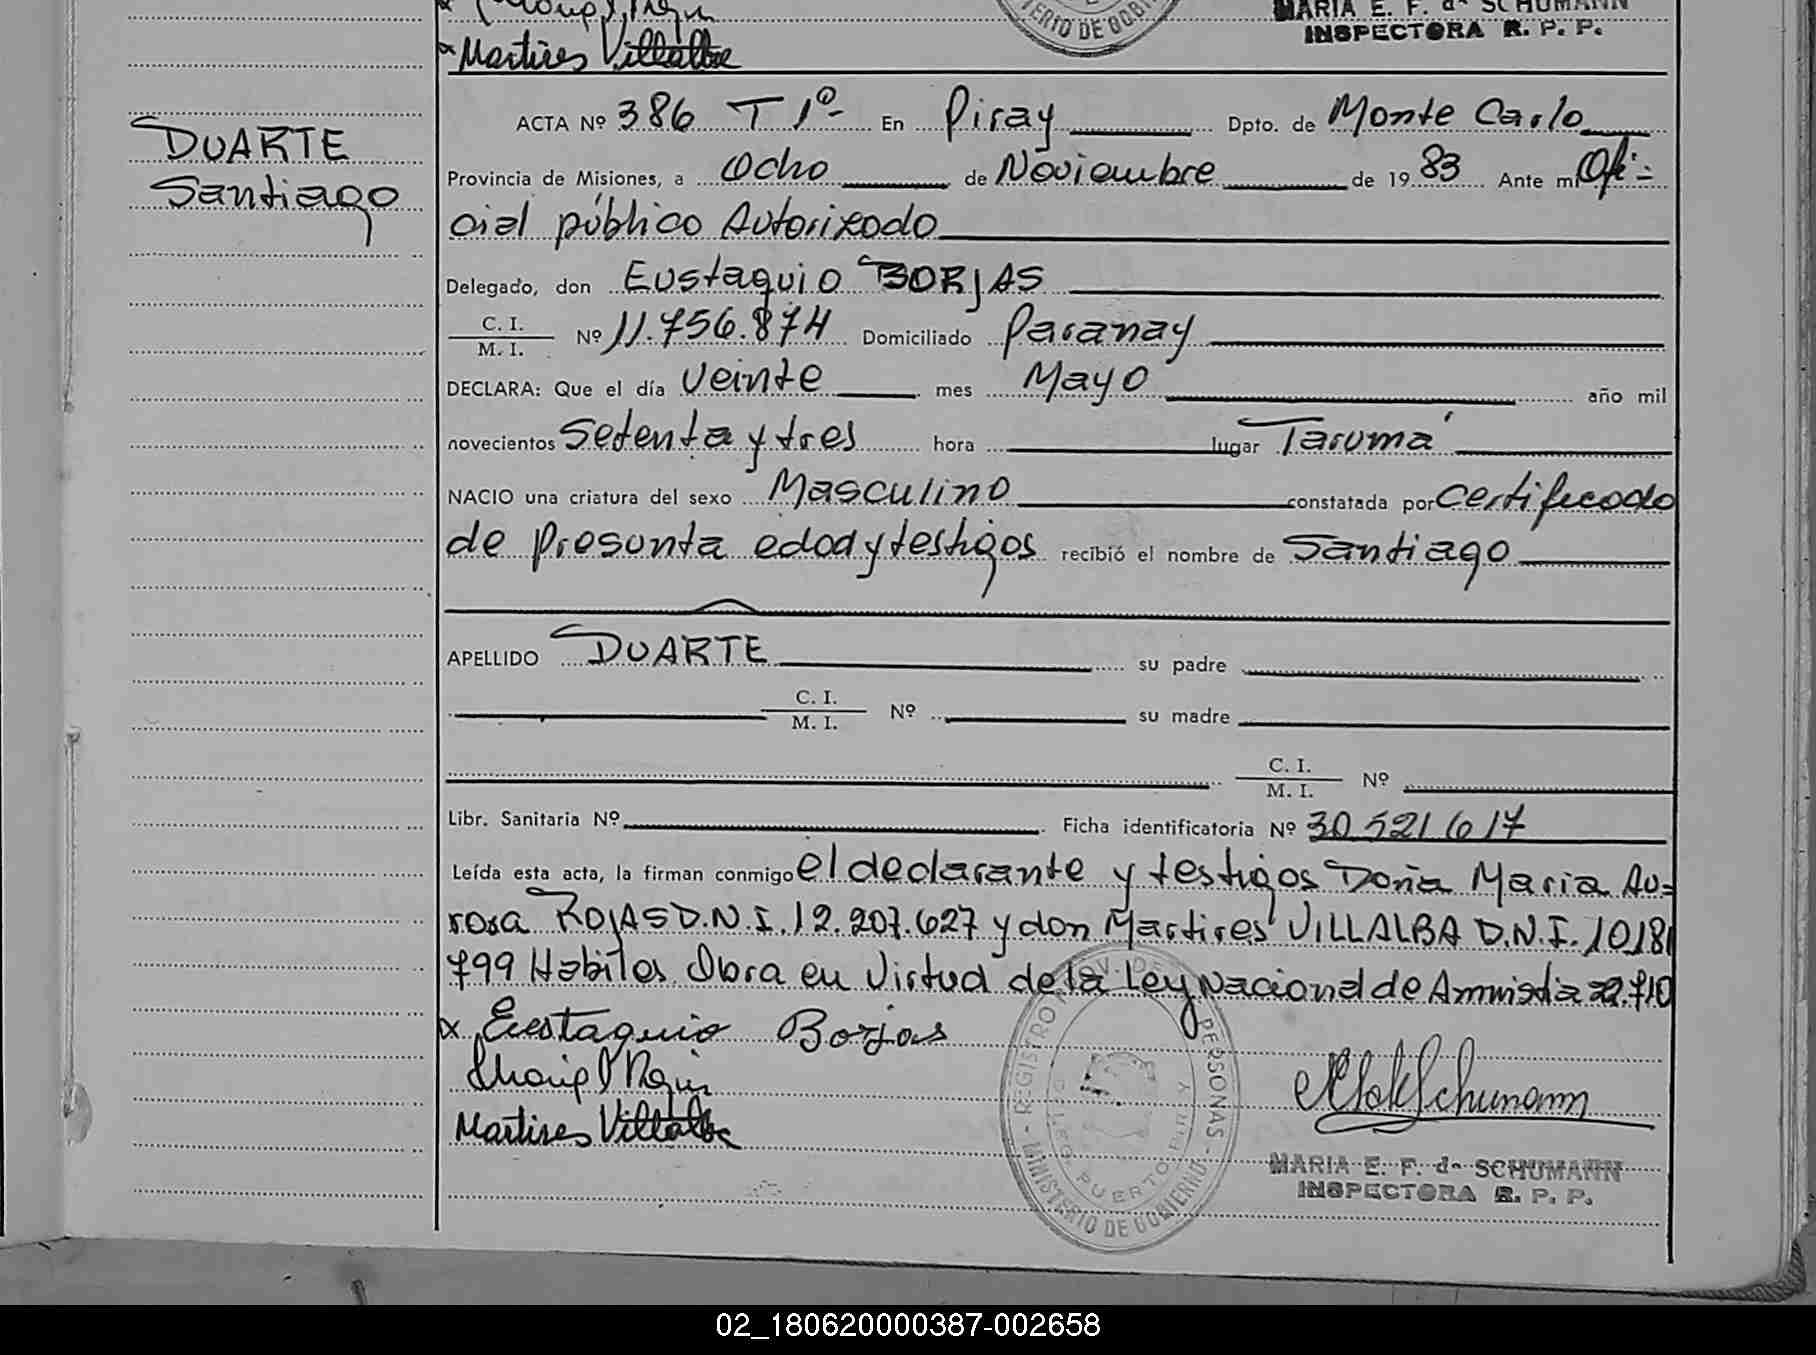 Martires Villalba
MARIA E. F. de SCHUMANN
INSPECTORA R. P. P.
TERIO DE GOBI
DUARTE
Santiago
ACTA Nº 386 T 1º- En Piray Dpto. de Monte Carlo
Provincia de Misiones, a Ocho de Noviembre de 1983 Ante mi Ofi-
cial público Autorizado
Delegado, don Eustaquio BORJAS
C. I.
M. I. Nº 11.756.874 Domiciliado Paranay
DECLARA: Que el día Veinte mes Mayo año mil
novecientos Setenta y tres hora lugar Tarumá
NACIO una criatura del sexo Masculino constatada por Certificado
de presunta edad y testigos recibió el nombre de Santiago
APELLIDO DUARTE su padre
C. I.
M. I. Nº su madre
C. I.
M. I. Nº
Libr. Sanitaria Nº Ficha identificatoria Nº 30521617
Leída esta acta, la firman conmigo el declarante y testigos Doña Maria Au=
rora ROJAS D.N.I. 12.207.627 y don Martires VILLALBA D.N.I. 10181
799 Habiles. Obra en Virtud de la Ley Nacional de Amnistia 22.710
x Eustaquio Borjas
Martires Villalba
Schumann
REGISTRO PROV. DE PERSONAS - MINISTERIO DE GOBIERNO -
PUERTO PIRAY
MARIA E. F. de SCHUMANN
INSPECTORA R. P. P.
02_180620000387-002658